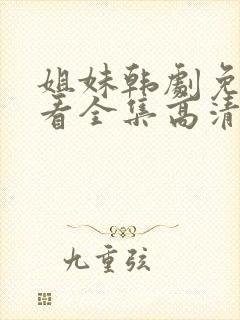 姐妹韩剧免
看全集高清
九重弦